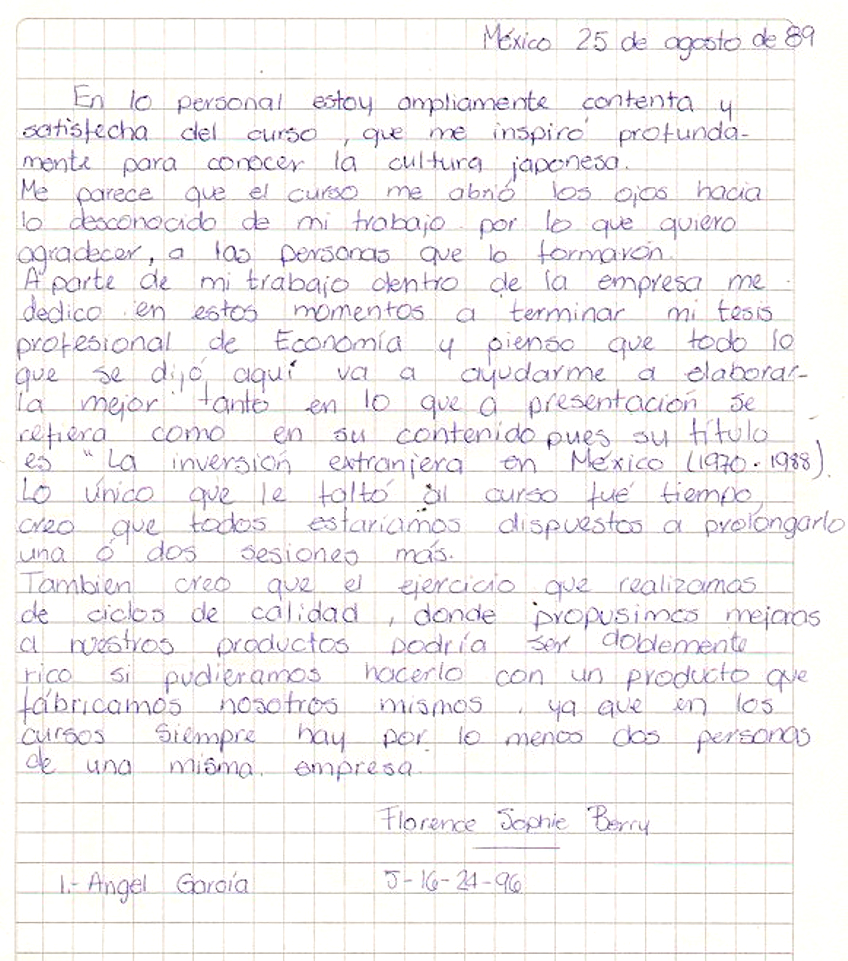 México 25 de agosto de 89
En lo personal estoy ampliamente contenta y
satisfecha del curso, que me inspiró profunda-
mente para conocer la cultura japonesa.
Me parece que el curso me abrió los ojos hacia
lo desconocido de mi trabajo por lo que quiero
agradecer, a las personas que lo formarón.
A parte de mi trabajo dentro de la empresa me
dedico en estos momentos a terminar mi tesis
profesional de Economía y pienso que todo lo
que se dijó aquí va a ayudarme a elaborar-
la mejor tanto en lo que a presentación se
refiera como en su contenido pues su título
es "La inversión extranjera en México (1970-1988).
Lo único que le faltó al curso fué tiempo,
creo que todos estaríamos dispuestos a prolongarlo
una ó dos sesiones más.
Tambien creo que el ejercicio que realizamos
de ciclos de calidad, donde propusimos mejoras
a nuestros productos podría ser doblemente
rico si pudieramos hacerlo con un producto que
fabricamos nosotros mismos, ya que en los
cursos siempre hay por lo menos dos personas
de una misma empresa.
Florence Sophie Berry
1.- Angel García 5-16-24-96